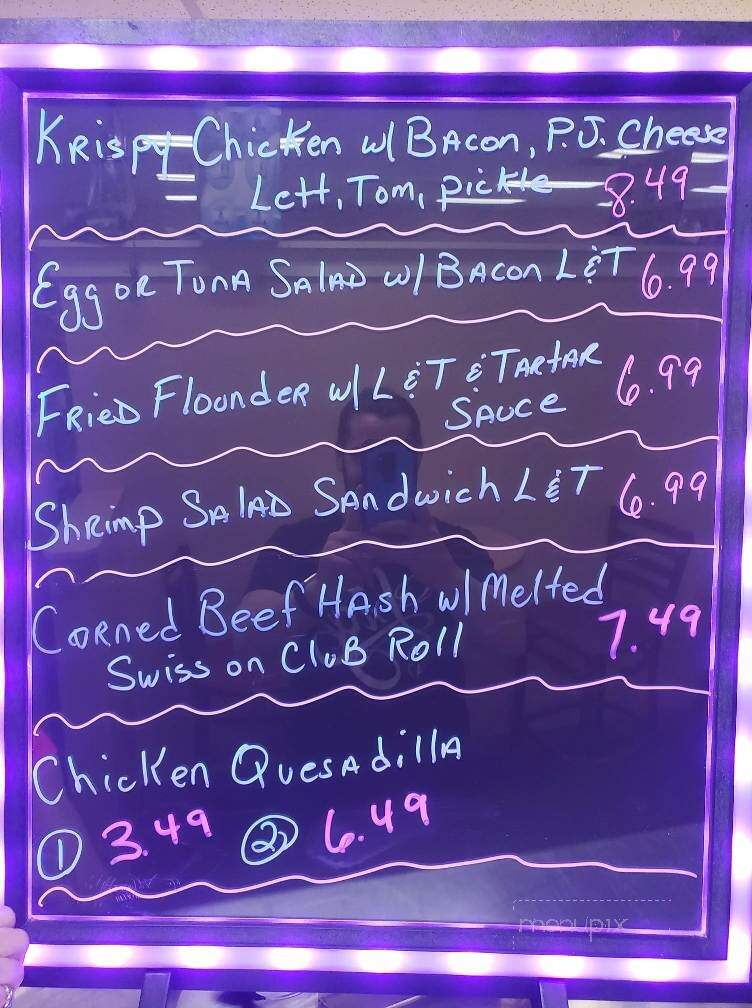 Krispy Chicken w/ Bacon, P.J. Cheese
Lett, Tom, pickle 8.49
Egg or Tuna Salad w/ Bacon L&T 6.99
Fried Flounder w/ L&T & Tartar
Sauce 6.99
Shrimp Salad Sandwich L&T 6.99
Corned Beef Hash w/ Melted
Swiss on Club Roll 7.49
Chicken Quesadilla
① 3.49 ② 6.49
menupix